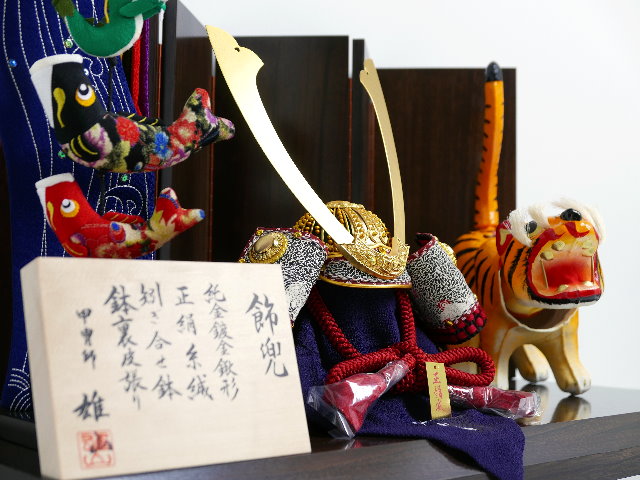 飾兜
純金鍍金鍬形
正絹糸縅
矧ぎ合せ鉢
鉢裏皮張り
甲冑師 雄山